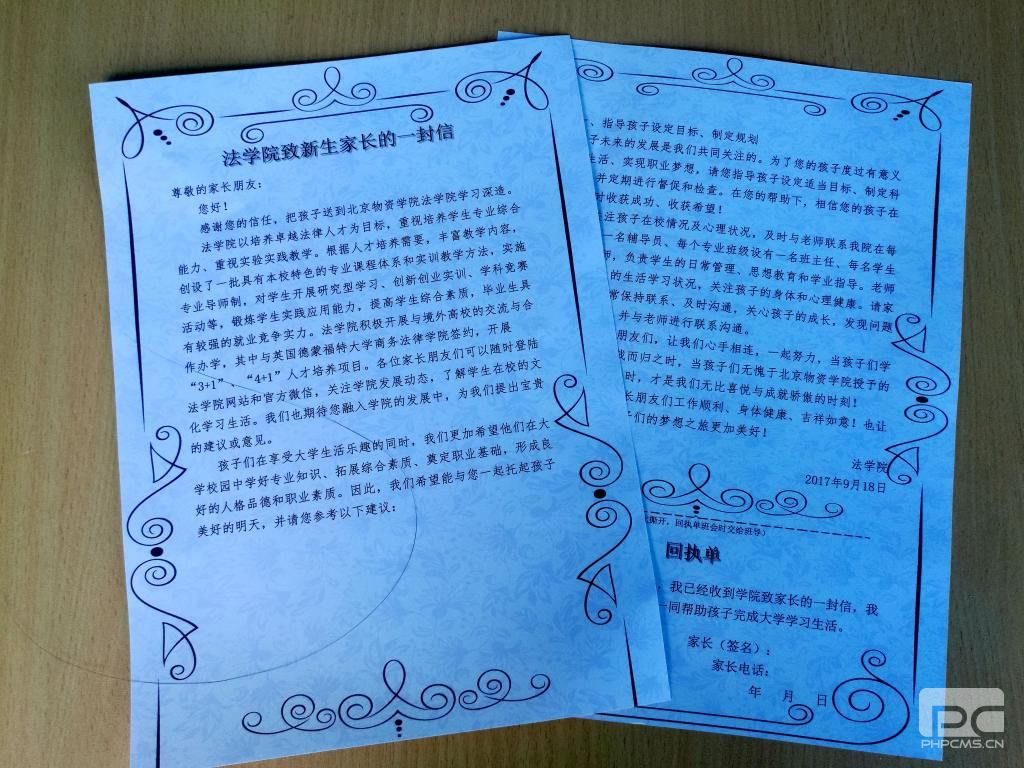 法学院致新生家长的一封信
尊敬的家长朋友：
您好！
感谢您的信任，把孩子送到北京物资学院法学院学习深造。
法学院以培养卓越法律人才为目标，重视培养学生专业综合
能力、重视实验实践教学。根据人才培养需要，丰富教学内容，
创设了一批具有本校特色的专业课程体系和实训教学方法，实施
专业导师制，对学生开展研究型学习、创新创业实训、学科竞赛
活动等，锻炼学生实践应用能力，提高学生综合素质，毕业生具
有较强的就业竞争实力。法学院积极开展与境外高校的交流与合
作办学，其中与英国德蒙福特大学商务法律学院签约，开展
“3+1”、“4+1”人才培养项目。各位家长朋友们可以随时登陆
法学院网站和官方微信，关注学院发展动态，了解学生在校的文
化学习生活。我们也期待您融入学院的发展中，为我们提出宝贵
的建议或意见。
孩子们在享受大学生活乐趣的同时，我们更加希望他们在大
学校园中学好专业知识、拓展综合素质、奠定职业基础，形成良
好的人格品德和职业素质。因此，我们希望能与您一起托起孩子
美好的明天，并请您参考以下建议：
、指导孩子设定目标、制定规划
子未来的发展是我们共同关注的。为了您的孩子度过有意义
生活、实现职业梦想，请您指导孩子设定适当目标、制定科
并定期进行督促和检查。在您的帮助下，相信您的孩子在
时收获成功、收获希望！
注孩子在校情况及心理状况，及时与老师联系我院在每
一名辅导员、每个专业班级设有一名班主任、每名学生
师，负责学生的日常管理、思想教育和学业指导。老师
的生活学习状况，关注孩子的身体和心理健康。请家
常保持联系、及时沟通，关心孩子的成长，发现问题
并与老师进行联系沟通。
朋友们，让我们心手相连，一起努力，当孩子们学
成而归之时，当孩子们无愧于北京物资学院授予的
时，才是我们无比喜悦与成就骄傲的时刻！
长朋友们工作顺利、身体健康、吉祥如意！也让
子们的梦想之旅更加美好！
法学院
2017年9月18日
撕开，回执单班会时交给班导）
回执单
，我已经收到学院致家长的一封信，我
一同帮助孩子完成大学学习生活。
家长（签名）：
家长电话：
年 月 日
PC
PHPCMS.CN